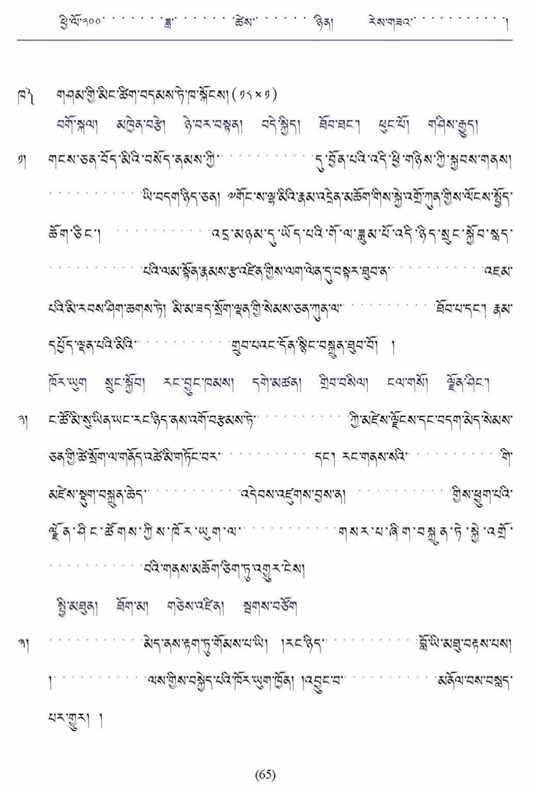 ཕྱི་ལོ་༢༠༠ ཟླ་ ཚེས་ ཉིན། རེས་གཟའ་ །
ཁ༽ གཤམ་གྱི་མིང་ཚིག་བདམས་ཏེ་ཁ་སྐོངས། (༡༨×༡)
བགོ་སྐལ། མཁྱེན་བརྩེ། ཉེ་བར་བསྟན། བདེ་སྐྱིད། ཐོབ་ཐང་། ཕུང་པོ། གཤིས་རྒྱུད།
༡། གངས་ཅན་བོད་མིའི་བསོད་ནམས་ཀྱི་ དུ་བྱོན་པའི་འདི་ཕྱི་གཉིས་ཀྱི་སྐྱབས་གནས།
ཡི་བདག་ཉིད་ཅན། ༧གོང་ས་ལྷ་མིའི་རྣམ་འདྲེན་མཆོག་གིས་སྐྱེ་འགྲོ་ཀུན་གྱིས་ལོངས་སྤྱོད་
ཆོག་ཅིང་། འདྲ་མཉམ་དུ་ཡོད་པའི་གོ་ལ་ཟླུམ་པོ་འདི་ཉིད་སྲུང་སྐྱོབ་སླད་
པའི་ལམ་སྟོན་རྣམས་རྩ་འཛིན་གྱིས་ལག་ལེན་དུ་བསྟར་ཐུབ་ན་ འཇམ་
པའི་མི་རབས་ཤིག་ཆགས་ཏེ། མི་མ་ཟད་སྲོག་ལྡན་གྱི་སེམས་ཅན་ཀུན་ལ་ ཐོབ་པ་དང་། རྣམ་
དཔྱོད་ལྡན་པའི་མིའི་ གྲུབ་པའང་དོན་སྙིང་བསྐྲུན་ཐུབ་བོ། །
ཁོར་ཡུག སྲུང་སྐྱོབ། རང་བྱུང་ཁམས། དགེ་མཚན། གྲིབ་བསིལ། ངལ་གསོ། ལྗོན་ཤིང་།
༢། ང་ཚོ་མི་སུ་ཡིན་ཡང་རང་ཉིད་ནས་འགོ་བརྩམས་ཏེ་ ཀྱི་མཛེས་ལྗོངས་དང་བདག་མེད་སེམས་
ཅན་གྱི་ཚེ་སྲོག་ལ་གནོད་འཚེ་མི་གཏོང་བར་ དང་། རང་གནས་སའི་ གི་
མཛེས་སྡུག་བསྐྲུན་ཆེད་ འདེབས་འཛུགས་བྱས་ན། གྱིས་ཕྱུག་པའི་
ལྗོན་ཤིང་ཚོགས་ཀྱིས་ཁོར་ཡུག་ལ་ གསར་པ་ཞིག་བསྐྲུན་ཏེ་སྐྱེ་འགྲོ་
བའི་གནས་མཆོག་ཅིག་ཏུ་འགྱུར་ངེས།
སྤྱི་མཐུན། ཐོག་མ། གཅེས་འཛིན། སྦགས་བཙོག
༣། མེད་ནས་རྟག་ཏུ་གོམས་པ་ཡི། །རང་ཉིད་ བློ་ཡི་མཐུ་བརྟས་པས།
། ལས་གྱིས་བསྐྱེད་པའི་ཁོར་ཡུག་ཁྱོན། །འབྱུང་བ་ མནོལ་བས་བསླད་
པར་གྱུར། །
(65)